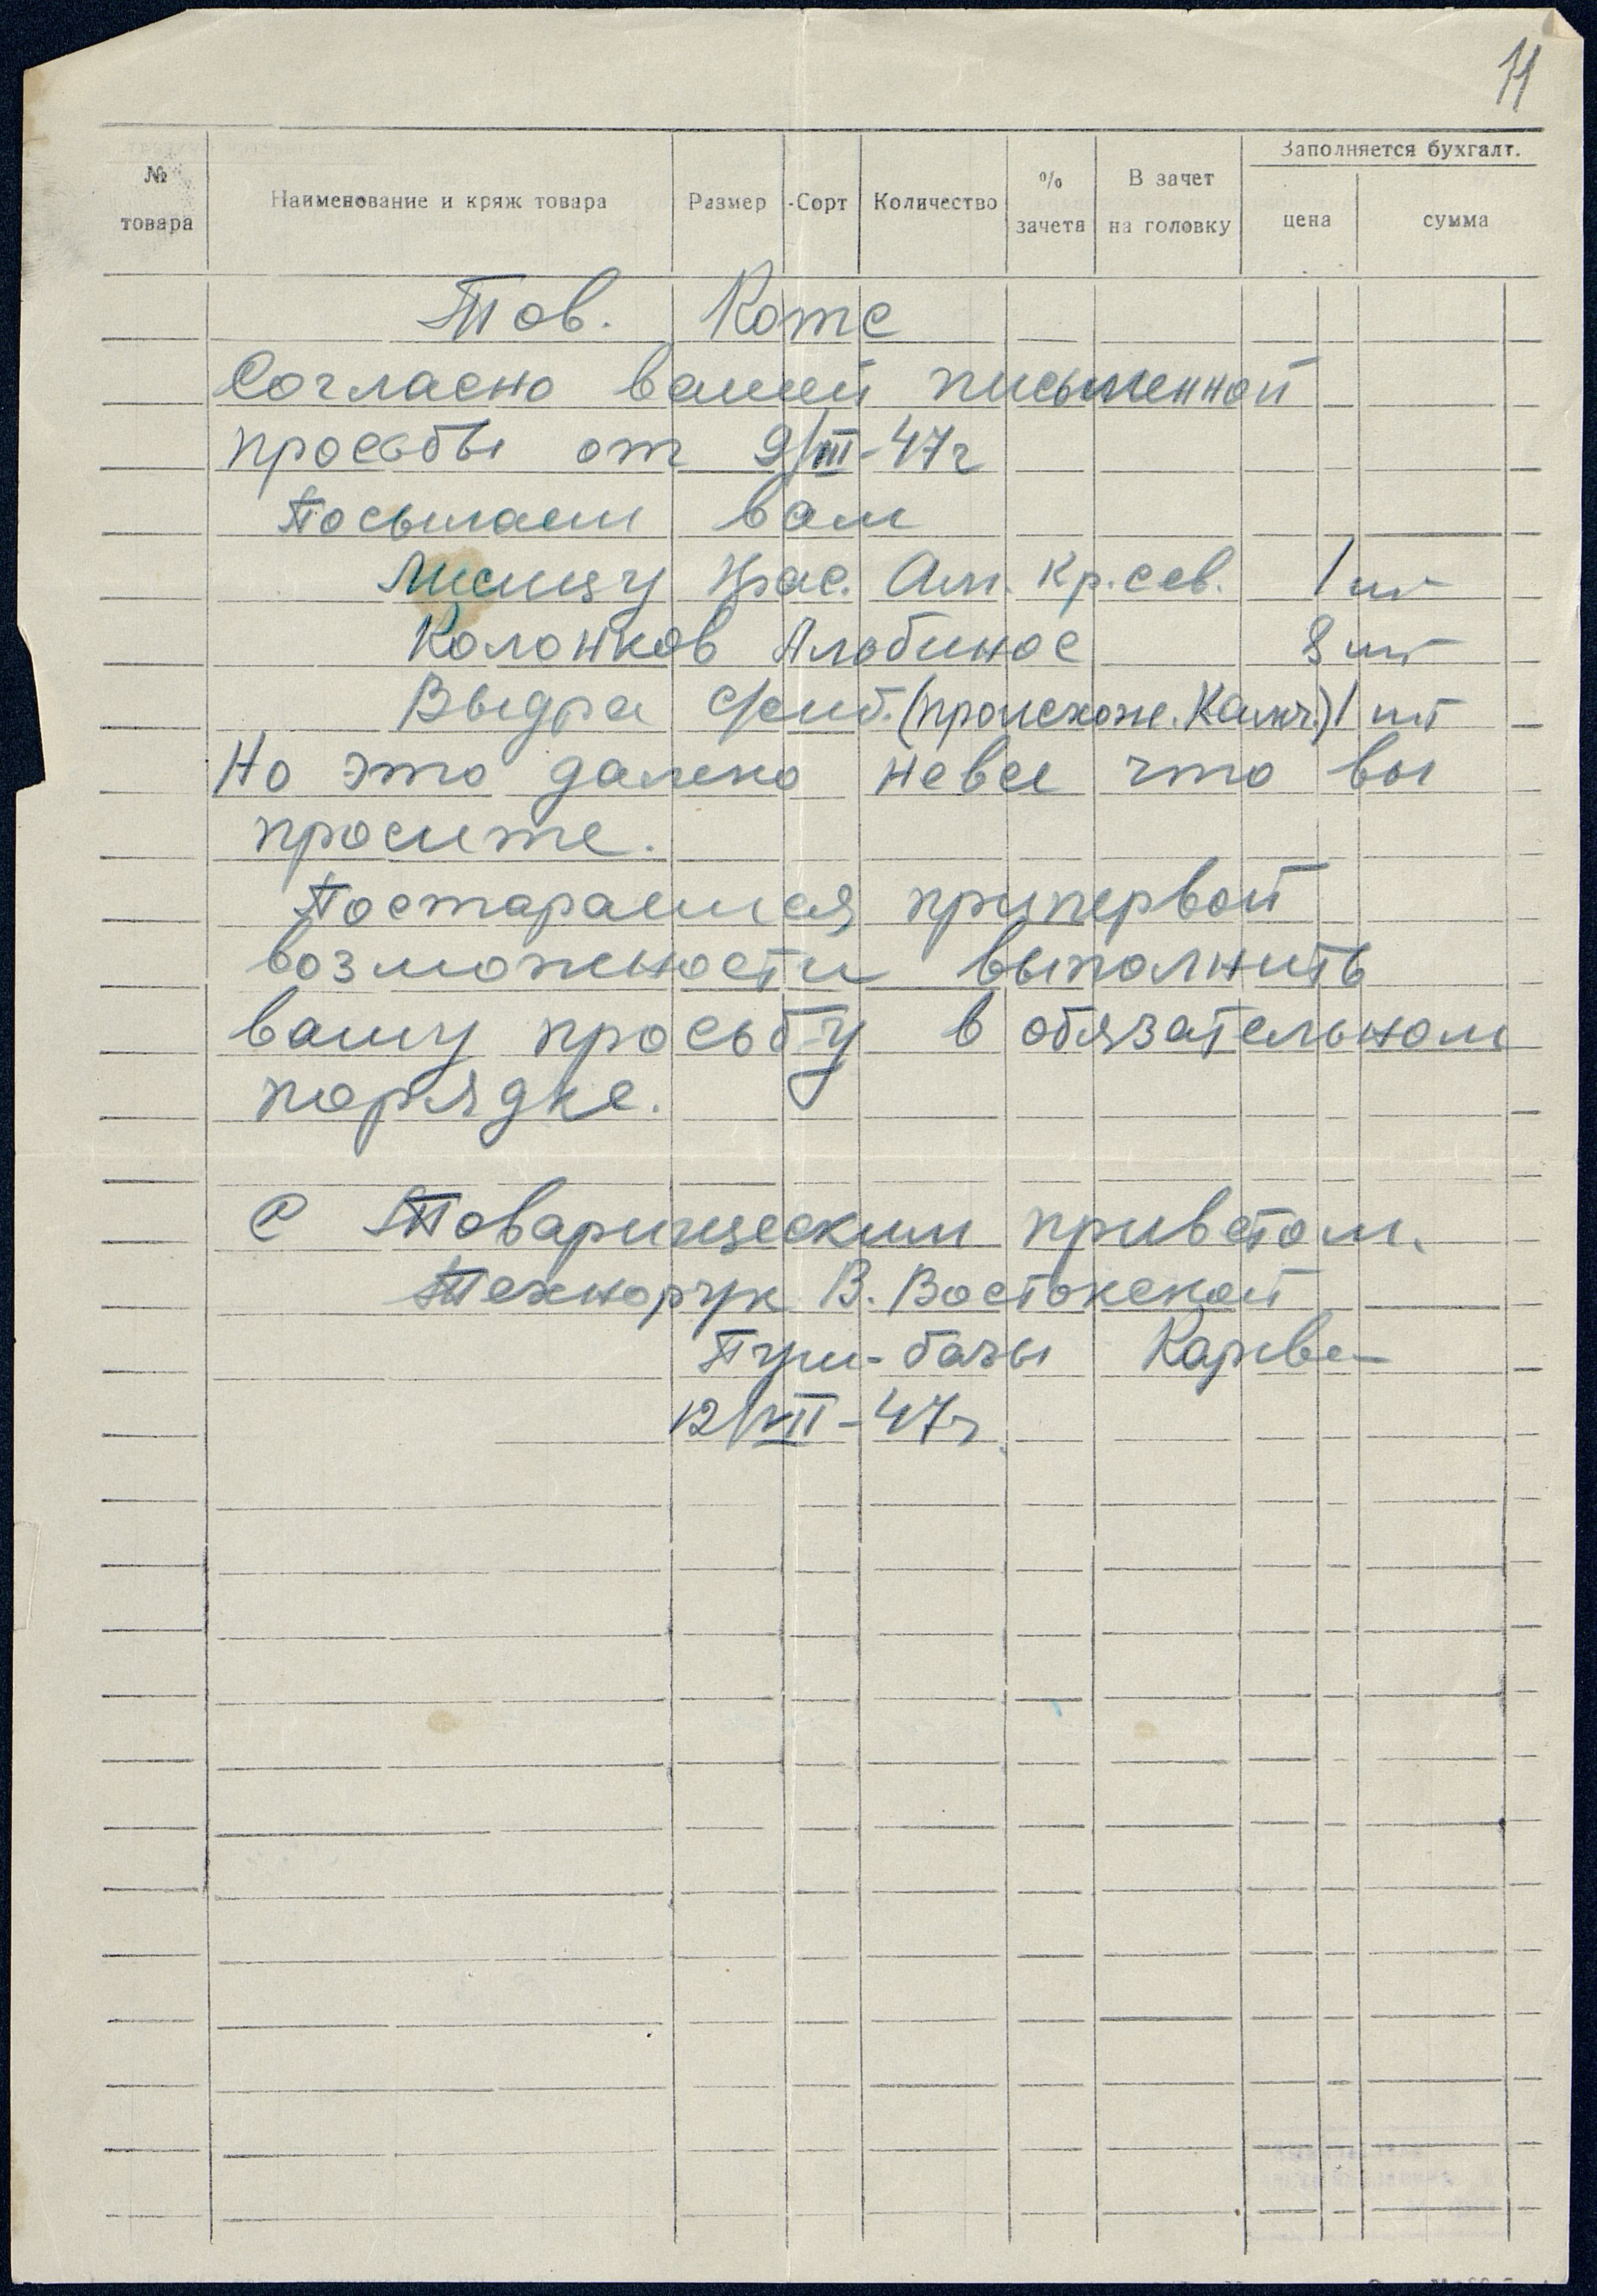 11
№ товара
Наименование и кряж товара
Размер
Сорт
Количество
% зачета
В зачет на головку
Заполняется бухгалт.
цена
сумма
Тов. Котс
Согласно вашей письменной
просьбы от 9/III-47г
Посылаем вам
Лисицу Крас. Ам. кр. сев. 1 шт
Колонков Альбинос 8 шт
Выдра (происхожд. Камч.) 1 шт
Но это далеко невсе что вы
просите.
Постараемся припервой
возможности выполнить
вашу просьбу в обязательном
порядке.
С Товарищеским приветом.
Технорук В. Востокской
Пуш-базы
12/VII-47г.